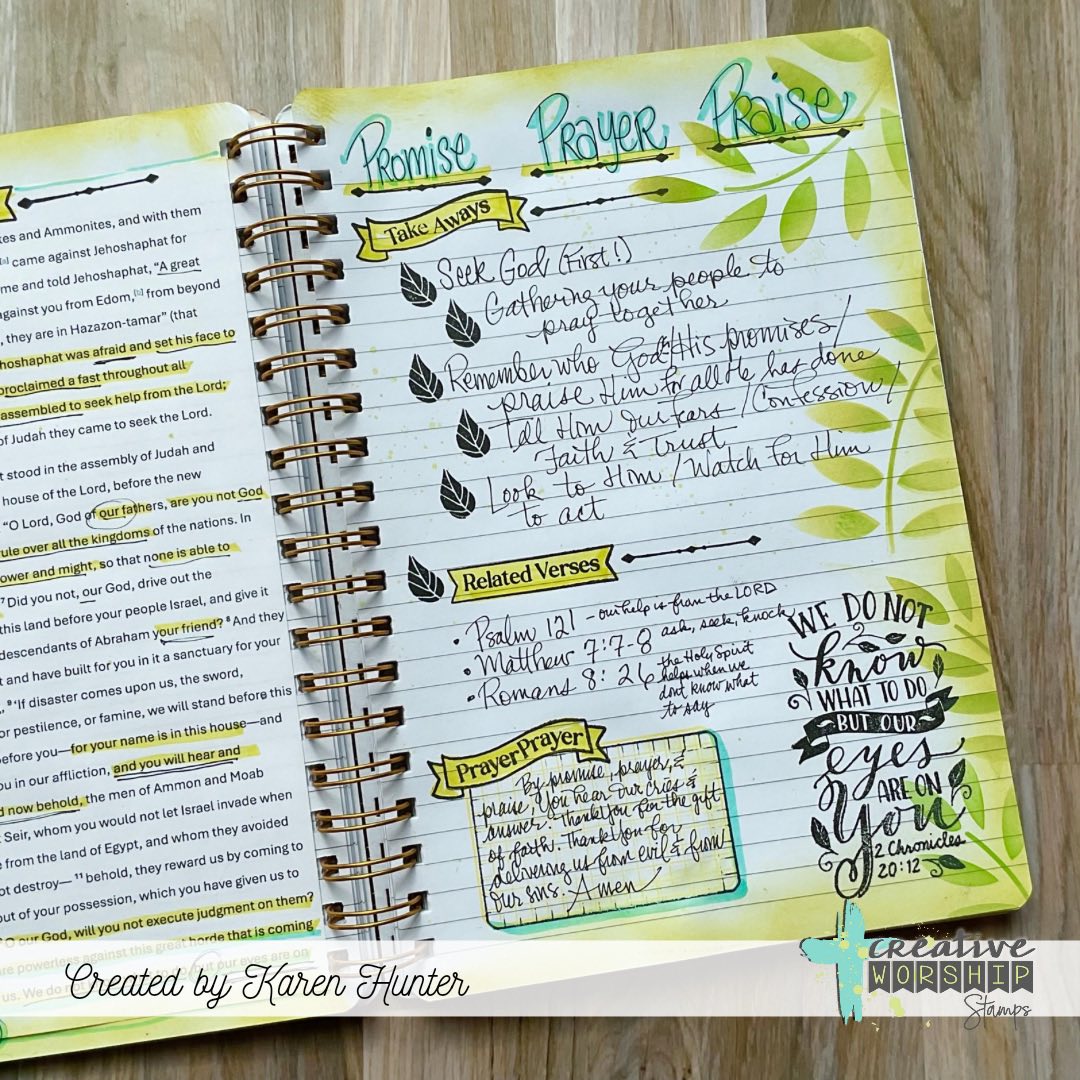 tes and Ammonites, and with them
[a] came against Jehoshaphat for
me and told Jehoshaphat, “A great
against you from Edom,[b] from beyond
, they are in Hazazon-tamar” (that
hoshaphat was afraid and set his face to
proclaimed a fast throughout all
assembled to seek help from the Lord;
of Judah they came to seek the Lord.
t stood in the assembly of Judah and
house of the Lord, before the new
“O Lord, God of our fathers, are you not God
rule over all the kingdoms of the nations. In
ower and might, so that none is able to
7 Did you not, our God, drive out the
this land before your people Israel, and give it
descendants of Abraham your friend? 8 And they
t and have built for you in it a sanctuary for your
, 9 ‘If disaster comes upon us, the sword,
or pestilence, or famine, we will stand before this
efore you—for your name is in this house—and
ou in our affliction, and you will hear and
d now behold, the men of Ammon and Moab
Seir, whom you would not let Israel invade when
e from the land of Egypt, and whom they avoided
ot destroy— 11 behold, they reward us by coming to
out of your possession, which you have given us to
O our God, will you not execute judgment on them?
re powerless against this great horde that is coming
us. We do not our eyes are on
Promise Prayer Praise
Take Aways
Seek God (First!)
Gathering your people to
pray together
Remember who God is/His promises/
praise Him for all He has done
Tell Him our fears/Confession/
Faith & Trust
Look to Him/Watch For Him
to act
Related Verses
• Psalm 121 – our help is from the LORD
• Matthew 7:7-8 ask, seek, knock
• Romans 8:26 the Holy Spirit
helps when we
dont know what
to say
WE DO NOT
know
WHAT TO DO
BUT OUR
eyes
ARE ON
You
2 Chronicles
20:12
PrayerPrayer
By promise, prayer, &
praise, You hear our cries &
answer. Thank You for the gift
of faith. Thank You for
delivering us from evil & from
our sins. Amen
Created by Karen Hunter
creative
WORSHIP
Stamps